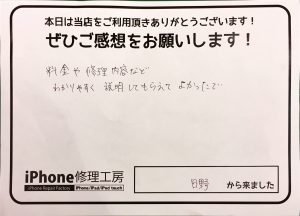 本日は当店をご利用頂きありがとうございます！
ぜひご感想をお願いします！
料金や修理内容など
わかりやすく説明してもらえてよかったです
iPhone修理工房
iPhone Repair Factory iPhone/iPad/iPod touch
日野 から来ました